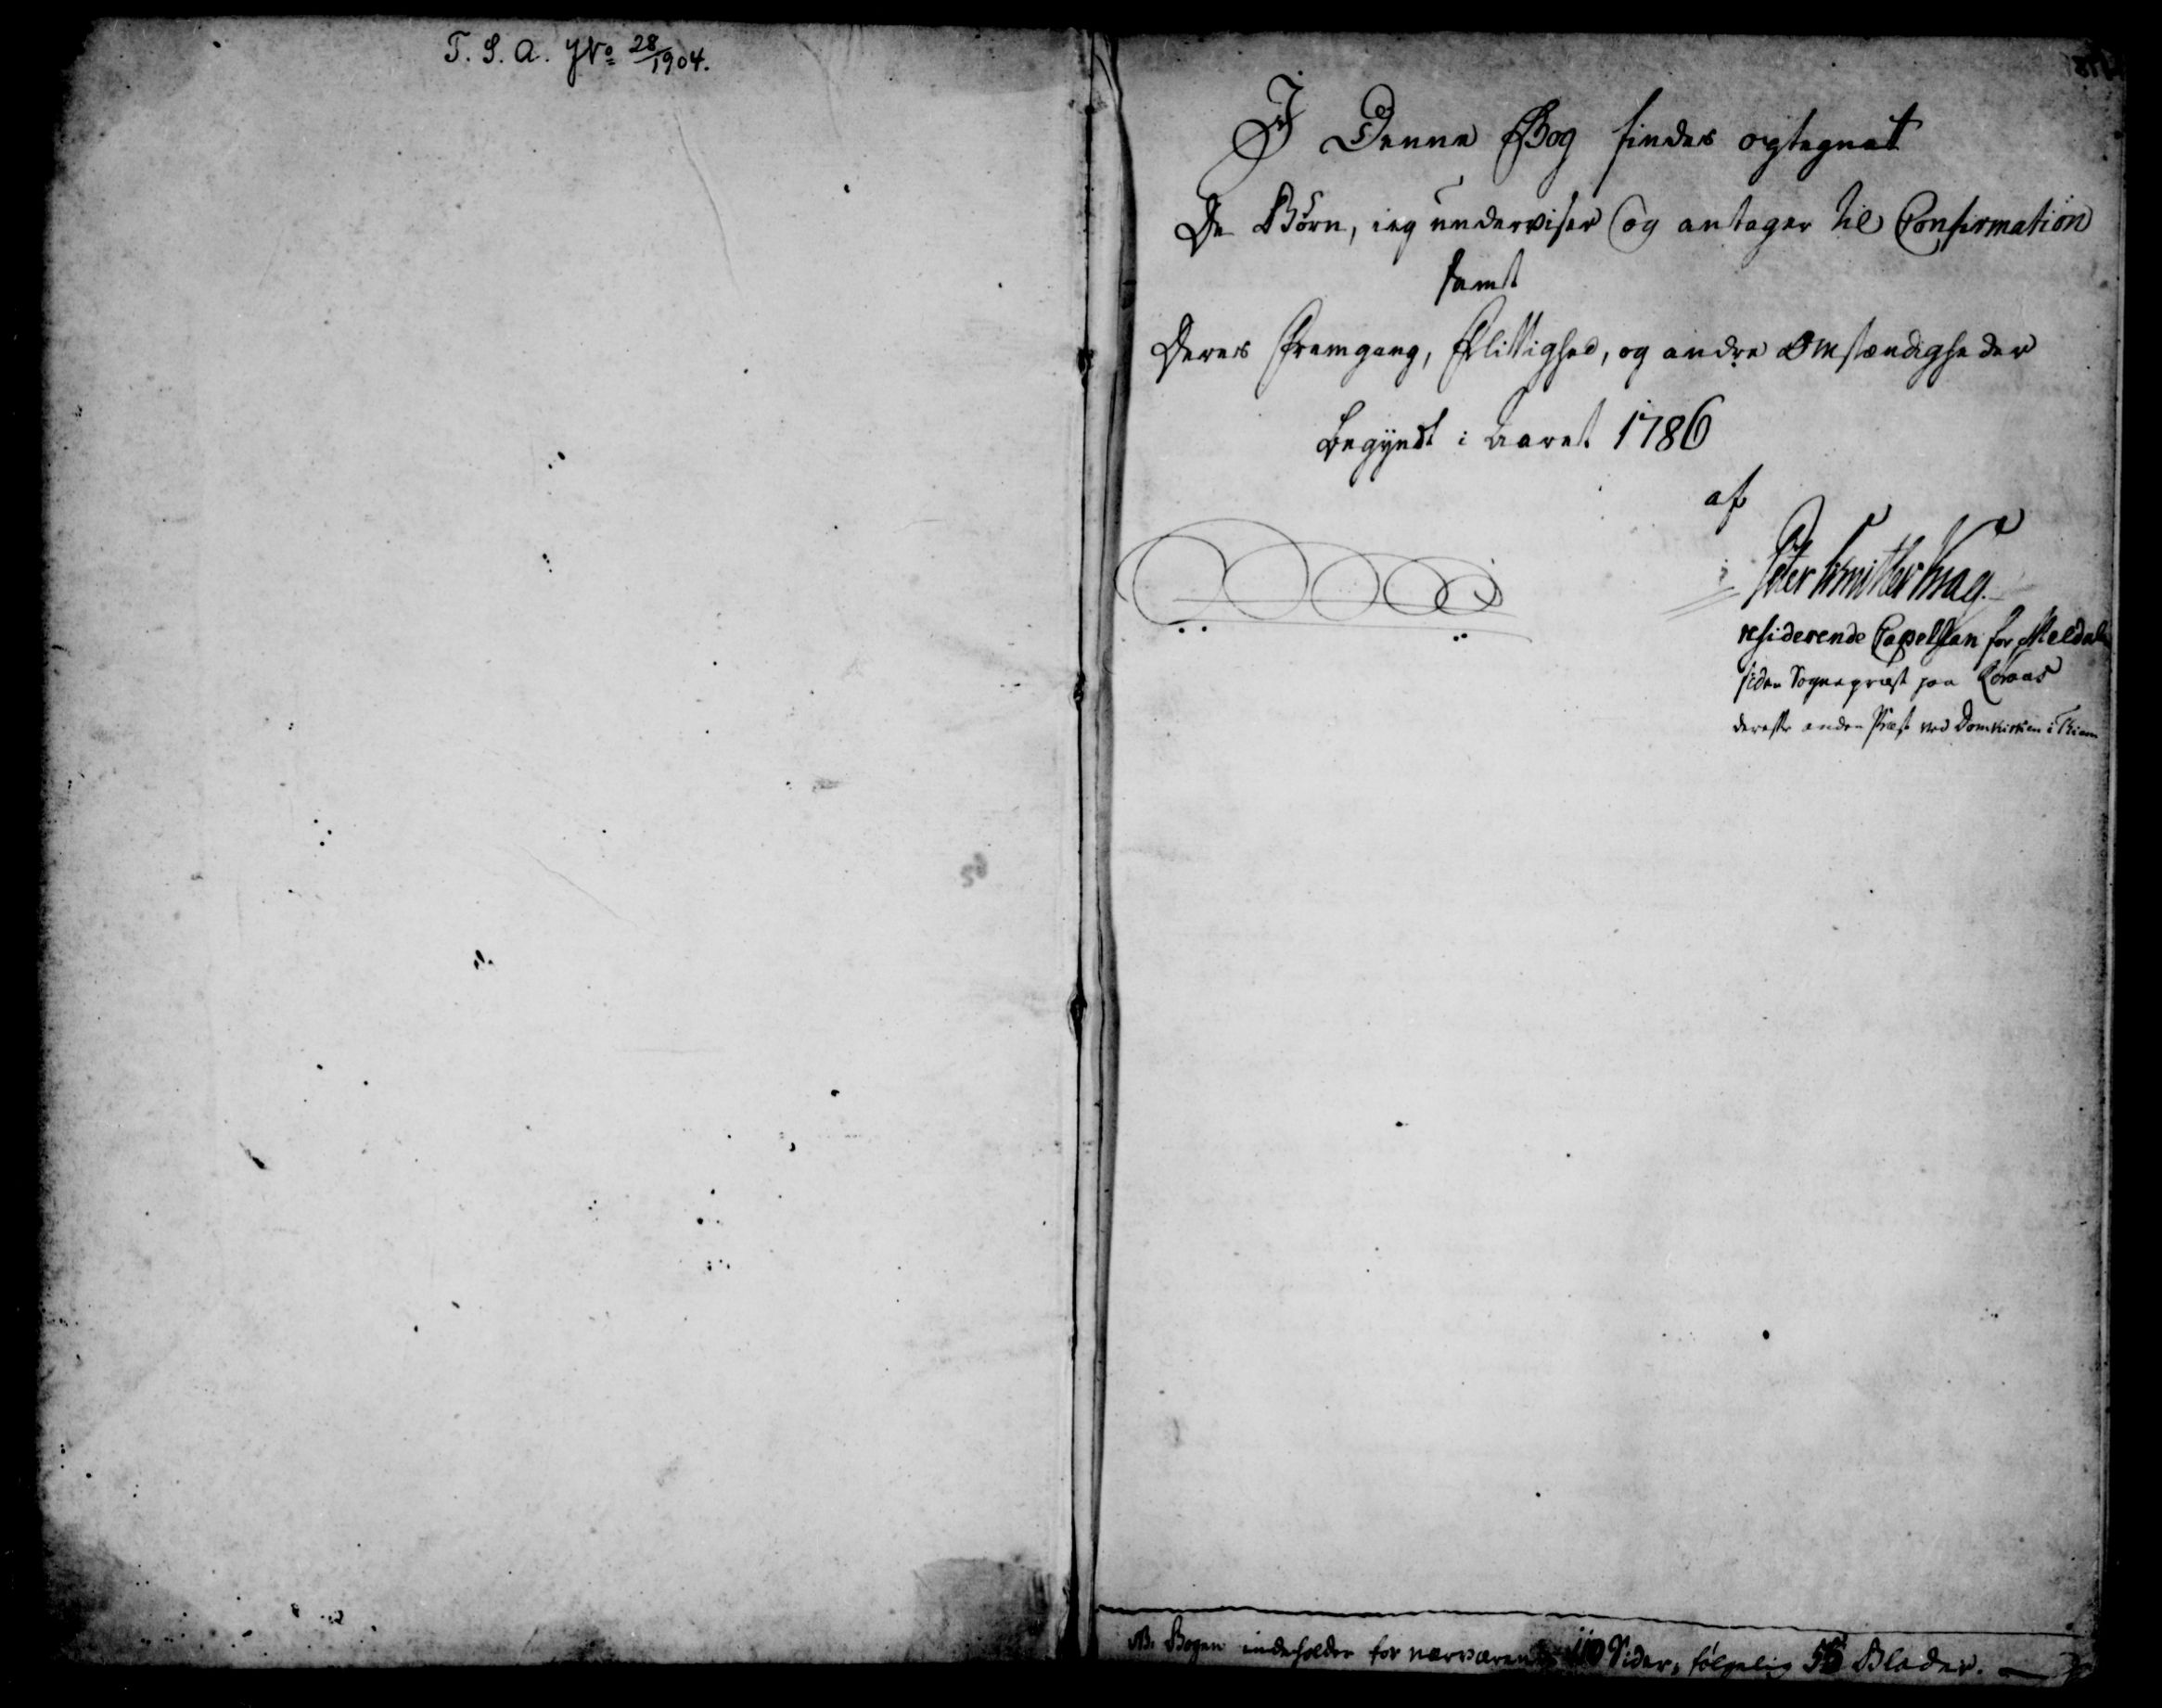 T. S. A. J No 28/1904.
I Denne Bog findes optegnet
De Börn, ieg underviser og antager til Confirmation
samt
Deres Fremgang, Flittighed, og andre Omstændigheder
begyndt i Aaret 1786
af
Peter Schmitler Krag.
residerende Capellan for Meldalen
siden Sognepræst paa Röraas
derefter anden Præst ved Domkirken i Thiem
NB. Bogen indeholder for nærværende 110 Sider, fölgelig 55 Blader.